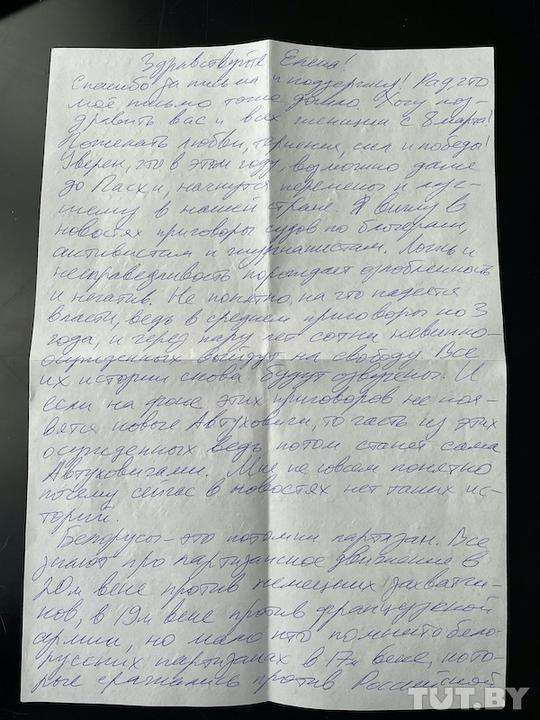 Здравствуйте Елена!
Спасибо за письма и поддержку! Рад, что
моё письмо тоже дошло. Хочу поз-
дравить вас и всех женщин с 8 марта!
Пожелать любви, терпения, сил и победы!
Уверен, что в этом году, возможно даже
до Пасхи, начнутся перемены к луч-
шему в нашей стране. Я вижу в
новостях приговоры судов по блогерам,
активистам и журналистам. Ложь и
несправедливость порождает озлобленность
и негатив. Не понятно, на что надеятся
власти, ведь в среднем приговоры по 3
года, и через пару лет сотни невинно-
осужденных выйдут на свободу. Все
их истории снова будут озвучены. И
если на фоне этих приговоров не поя-
вятся новые Автуховичи, то часть из этих
осужденных ведь потом станет сама
Автуховичами. Мне не совсем понятно
почему сейчас в новостях нет таких ис-
торий.
Белорусы – это потомки партизан. Все
знают про партизанское движение в
20м веке против немецких захватчи-
ков, в 19м веке против французской
армии, но мало кто помнит о бело-
русских партизанах в 17м веке, кото-
рые сражались против Российской
TUT.BY